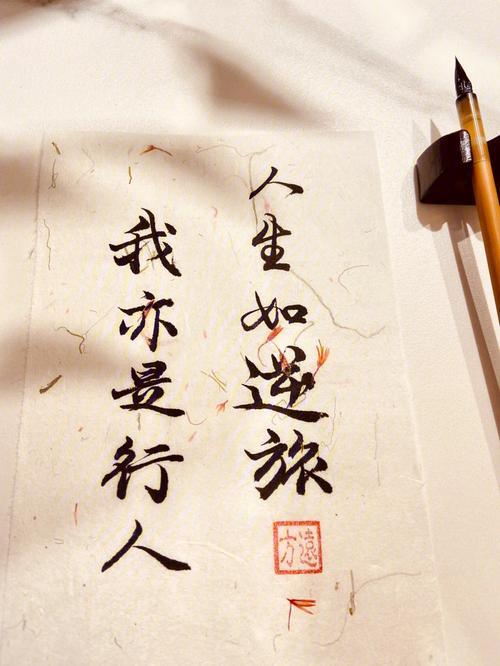 人生如逆旅
我亦是行人
遠方